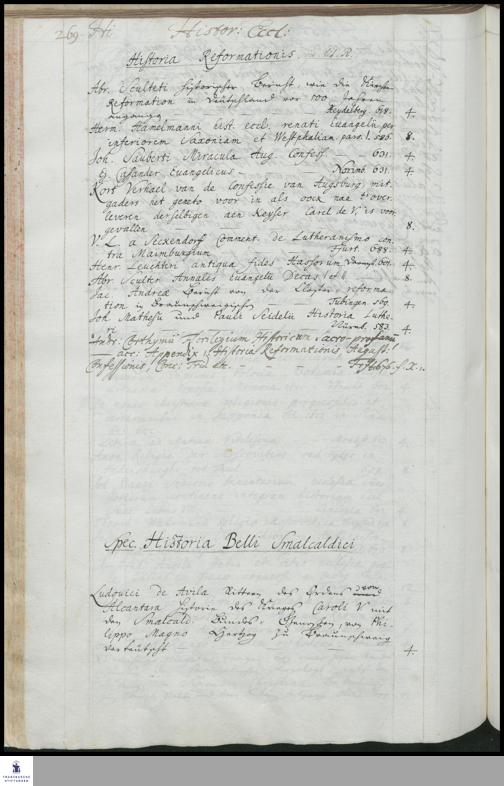 269 Hi Histor: Eccl:
Historia Reformationis in U. R.
Abr. Sculteti Historischer Bericht, wie die Kirchen
Reformation in Deutschland vor 100 Jahren
angangen — Heydelberg. 618. 4.
Herm. Hamelmanni hist. eccl. renati Evangelii per
inferiorem Saxoniam et Westphaliam. pars. I. 586. 8.
Joh. Sauberti Miracula Aug. Confess. — 631. 4.
Ej. Casander Evangelicus — Norimb. 631. 4.
Kort Verhael van de Confessie van Augsburg, mit-
gaders het geene voor in als oock nae t'over-
leveren derselbigen aen Keyser Carel de V. is voor
gevallen 8.
V. L. a Seckendorf Comment. de Lutheranismo con-
tra Maimburgium — Ffurt. 688. 4.
Henr. Leuchteri antiqua fides Hassorum Darmst. 607. 4.
Abr. Scultet Annales Evangelii Decas 1 et 8.
Jac. Andreæ Bericht von der Kloster reforma-
tion in Braunschweigischen — Tubingen 569. 4.
Joh. Mathesii und Pauli Seidelii Historia Luthe-
ri — Nürnb. 583. 4.
Andr. Corthymii Florilegium Historicum sacro-profanum
acc. Appendix Historiæ Reformationis August:
Confessionis, Conc: Trid. etc. — — —
Spec. Historia Belli Smalcaldici
Ludovici de Avila Rittern des Ordens von
Alcantara Historia des Krieges Caroli V mit
den Smalcald. Bundes-Genossen, von Phi-
lippo Magno Hertzog zu Braunschweig
verteutscht — 4.
FRANCKESCHE
STIFTUNGEN